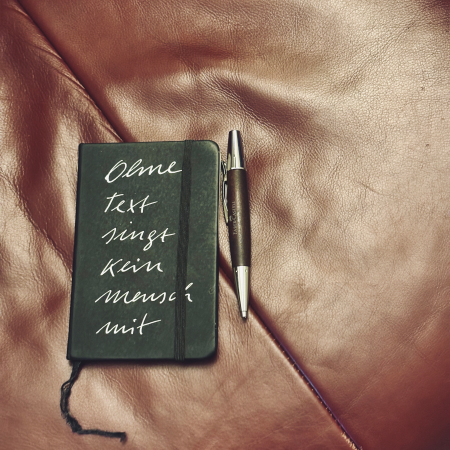 Ohne
text
singt
kein
mensch
mit